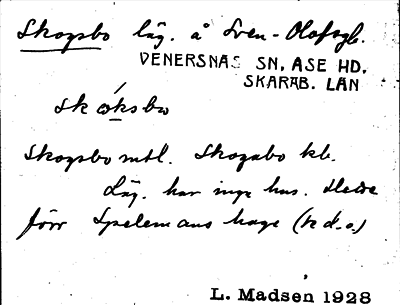 Skogsbo läg. å Sven-Olofsgb.
VENERSNÄS SN, ÅSE HD,
SKARAB. LÄN
skóksbω
Skogsbo mtl. Skogabo kb.
Läg. har inga hus. Hette
förr Spelemans hage (k d.o.)
L. Madsen 1928